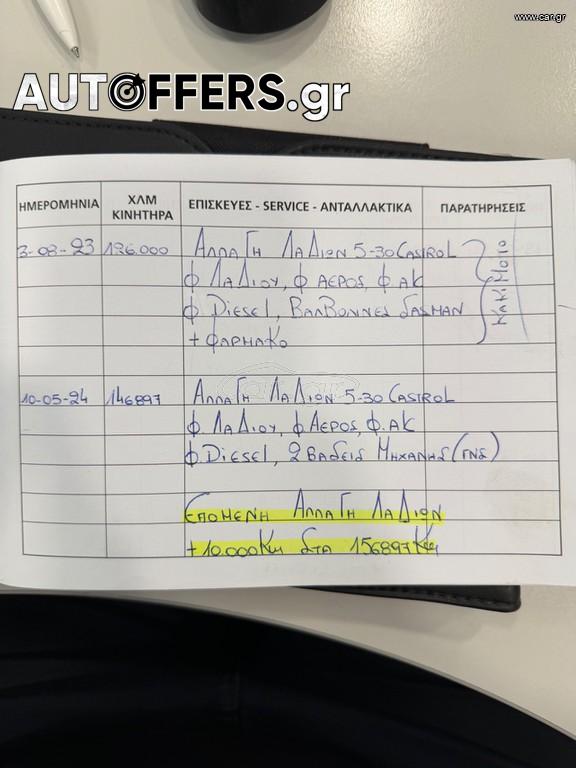 www.car.gr
AUTOFFERS.gr
ΗΜΕΡΟΜΗΝΙΑ ΧΛΜ ΚΙΝΗΤΗΡΑ ΕΠΙΣΚΕΥΕΣ - SERVICE - ΑΝΤΑΛΛΑΚΤΙΚΑ ΠΑΡΑΤΗΡΗΣΕΙΣ
3-08-23 126.000 ΑΛΛΑΓΗ ΛΑΔΙΩΝ 5-30 CASTROL
Φ ΛΑΔΙΟΥ, Φ ΑΕΡΟΣ, Φ.ΑΚ
Φ DIESEL, ΒΑΛΒΟΛΙΝΕΣ
+ ΦΑΡΜΑΚΟ
10-05-24 146897 ΑΛΛΑΓΗ ΛΑΔΙΩΝ 5-30 CASTROL
Φ ΛΑΔΙΟΥ, Φ ΑΕΡΟΣ, Φ.ΑΚ
Φ.DIESEL, 2 ΒΑΣΕΙΣ ΜΗΧΑΝΗΣ (ΓΝΣ)
ΕΠΟΜΕΝΗ ΑΛΛΑΓΗ ΛΑΔΙΩΝ
+10.000Κμ ΣΤΑ 156897 Κμ